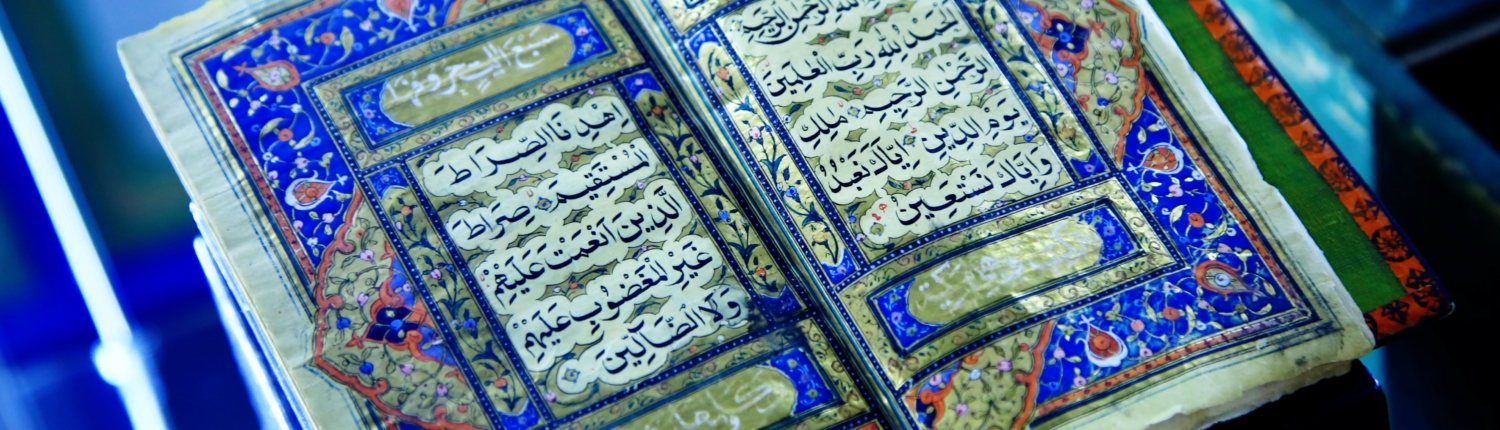 اللهِ الرَّحْمٰنِ الرَّحِيْمِ
اَلْحَمْدُ لِلّٰهِ رَبِّ الْعٰلَمِيْنَ
الرَّحْمٰنِ الرَّحِيْمِ مٰلِكِ
يَوْمِ الدِّيْنِ اِيَّاكَ نَعْبُدُ
وَاِيَّاكَ نَسْتَعِيْنُ
سبع ايات حروفها
اِهْدِنَا الصِّرَاطَ
الْمُسْتَقِيْمَ صِرَاطَ
الَّذِيْنَ اَنْعَمْتَ عَلَيْهِمْ
غَيْرِ الْمَغْضُوْبِ عَلَيْهِمْ
وَلَا الضَّآلِّيْنَ